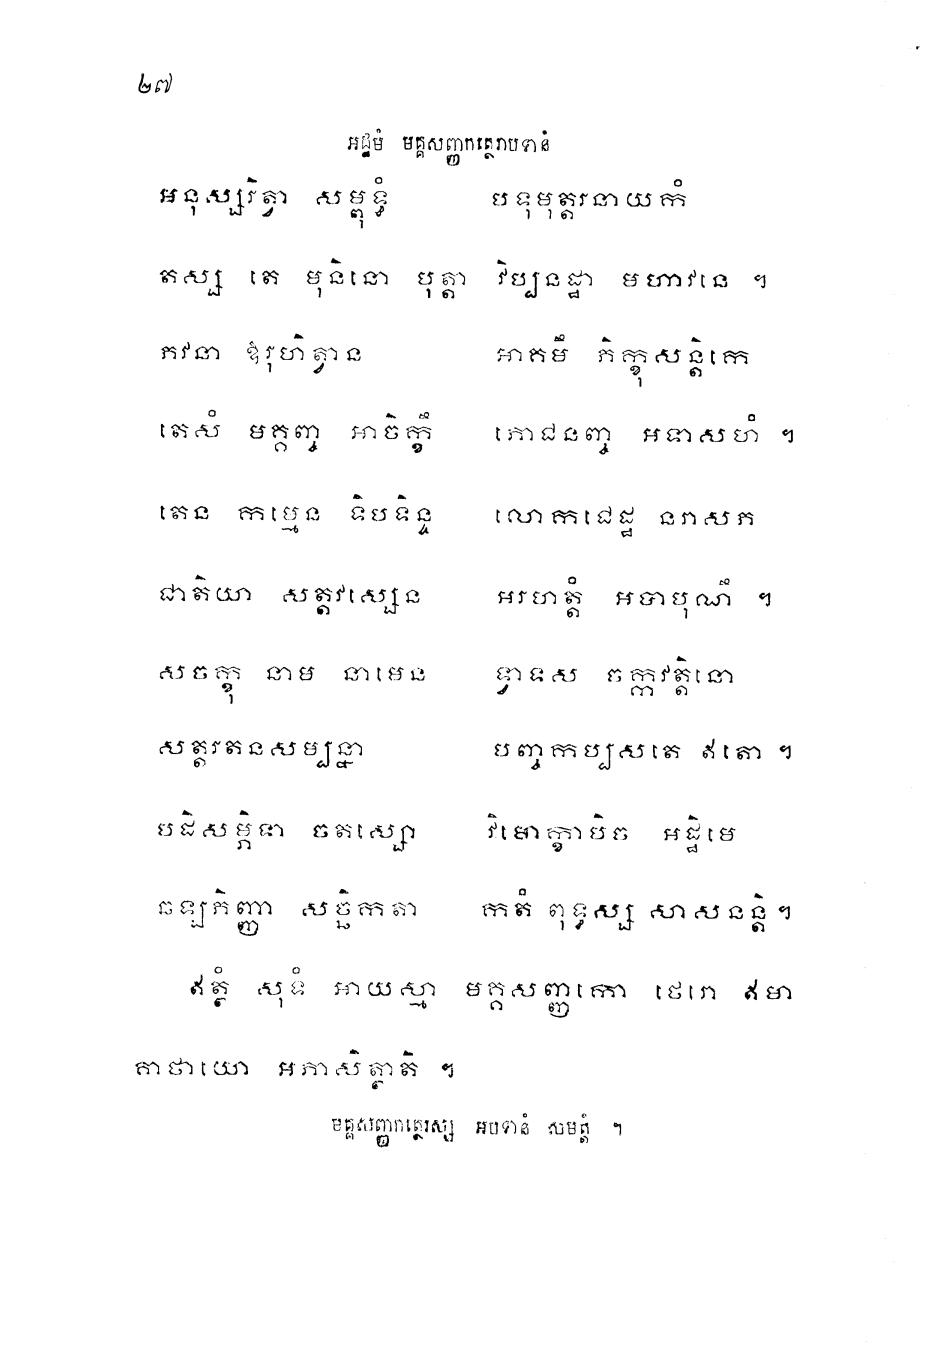 ២៧
អដ្ឋមំ មគ្គសញ្ញកត្ថេរាបទានំ
អនុស្សរិត្វា សម្ពុទ្ធំ បទុមុត្តរនាយកំ
តស្ស តេ មុនិនោ បុត្តា វិប្បនដ្ឋា មហាវនេ ។
ភវនា ឱរុហិត្វាន អាគមឹ ភិក្ខុសន្តិកេ
តេសំ មគ្គញ្ច អាចិក្ខឹ ភោជនញ្ច អទាសហំ ។
តេន កម្មេន ទិបទិន្ទ លោកជេដ្ឋ នរាសភ
ជាតិយា សត្តវស្សេន អរហត្តំ អបាបុណឹ ។
សចក្ខុ នាម នាមេន ទ្វាទស ចក្កវត្តិនោ
សត្តរតនសម្បន្នា បញ្ចកប្បសតេ ឥតោ ។
បដិសម្ភិទា ចតស្សោ វិមោក្ខាបិច អដ្ឋិមេ
ឆឡភិញ្ញា សច្ឆិកតា កតំ ពុទ្ធស្ស សាសនន្តិ។
ឥត្ថំ សុទំ អាយស្មា មគ្គសញ្ញកោ ថេរោ ឥមា
គាថាយោ អភាសិត្ថាតិ ។
មគ្គសញ្ញកត្ថេរស្ស អបទានំ សមត្តំ ។